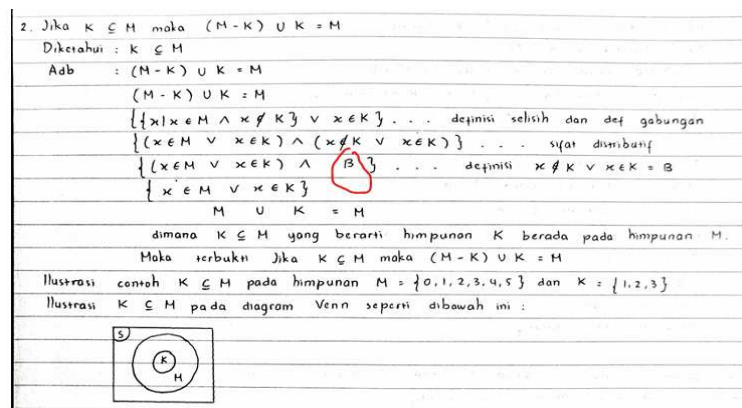 2. Jika K ⊆ M maka (M - K) ∪ K = M
Diketahui : K ⊆ M
Adb : (M - K) ∪ K = M
(M - K) ∪ K = M
{{x|x ∈ M ∧ x ∉ K} ∨ x ∈ K} . . . definisi selisih dan def gabungan
{(x ∈ M ∨ x ∈ K) ∧ (x ∉ K ∨ x ∈ K)} . . . sifat distributif
{(x ∈ M ∨ x ∈ K) ∧ B} . . . definisi x ∉ K ∨ x ∈ K = B
{x ∈ M ∨ x ∈ K}
M ∪ K = M
dimana K ⊆ M yang berarti himpunan K berada pada himpunan M.
Maka terbukti Jika K ⊆ M maka (M - K) ∪ K = M
Ilustrasi contoh K ⊆ M pada himpunan M = {0, 1, 2, 3, 4, 5} dan K = {1, 2, 3}
Ilustrasi K ⊆ M pada diagram Venn seperti dibawah ini :
S
K
M